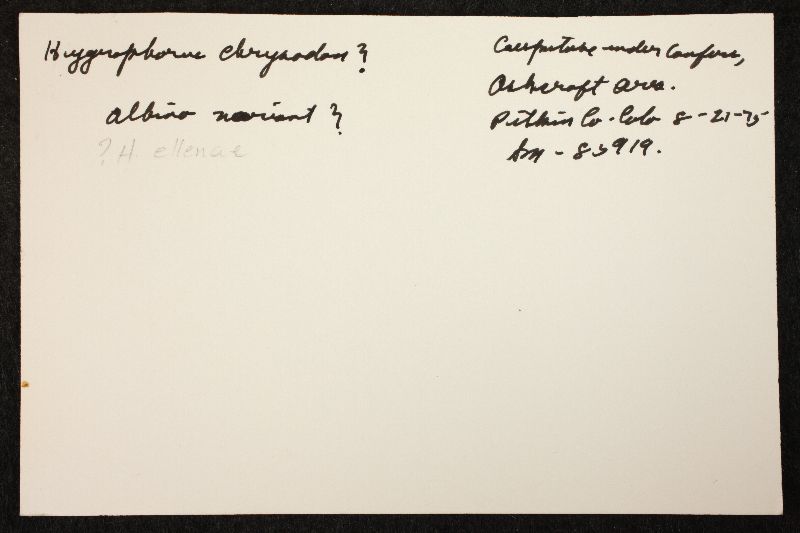 Hygrophorus chrysodon?
albino variant?
? H. ellenae
Caespitose under Conifers,
Ashcroft area.
Pitkin Co. Colo 8-21-75
Sm-85919.